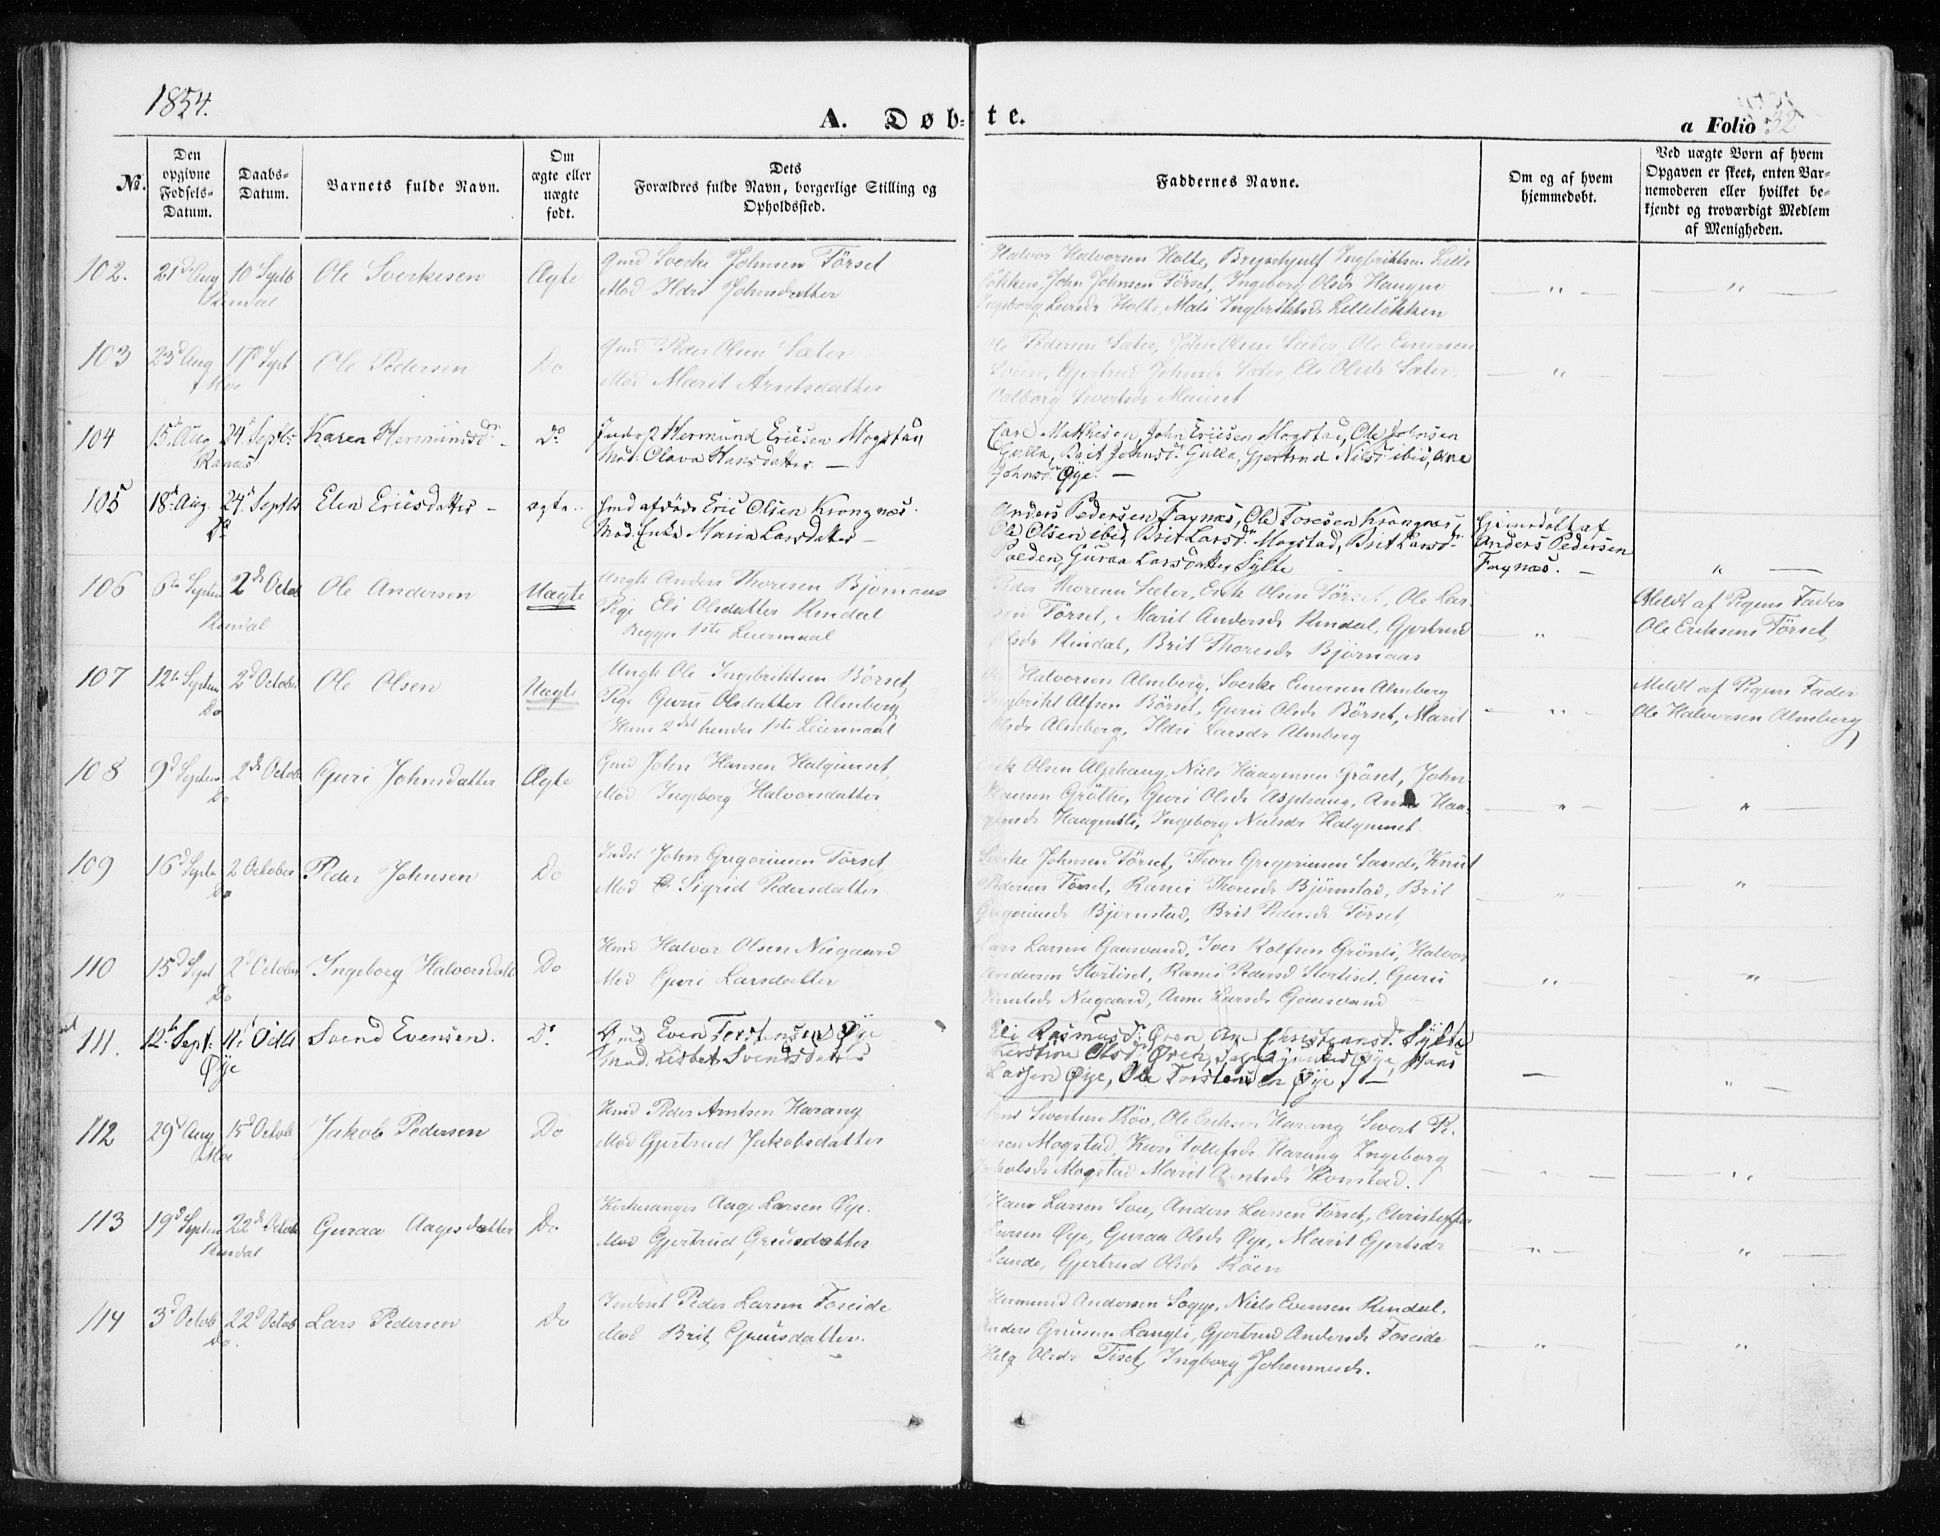 1854.
A. Døbte.
a Folio 32
No.
Den opgivne Fødsels-Datum.
Daabs-Datum.
Barnets fulde Navn.
Om ægte eller uægte født.
Dets Forældres fulde Navn, borgerlige Stilling og Opholdssted.
Faddernes Navne.
Om og af hvem hjemmedøbt.
Ved uægte Børn af hvem Opgaven er skeet, enten Barnemoderen eller hvilket bekjendt og troværdigt Medlem af Menigheden.
102. 21d Aug 10 Septb Ole Sverkesen Ægte Gmd Sverke Johnsen Törset
Rindal Mod Ildri Johnsdatter
Halvor Halvorsen Holte, Ingbriktsen Lille
lökken, John Johnsen Törset, Ingeborg Olsdr Haugen
Ingeborg Holte, Mali Ingbriktsdr Lillelökken
103 23d Aug 17d Sept Ole Pedersen Do Gmd Peder Olsen Sæter
Moe Mod Marit Arntsdatter
Ole Pedersen Sæter, John Olsen Sæter, Ole
Gjertrud Johnsdr Sæter, Eli Olsdr Sæter
104 15d Aug 24d Septb Karen Hermundsdr Do Hermund Ericsen Mogstad
Ranæs Mod. Olava Hansdatter
Matthesen, John Ericsen Mogstad, Ole Johnsen
Gulla, Brit Johnsdr Gulla, Gjertrud Nilsdr ibid, Ane
Johnsdr Øye.
105 18d Aug. 24d Septb Elen Ericsdatter ægte Gmd afdöde Eric Olsen Krongnæs.
Do Mod. Enke Maria Larsdatter
Anders Pedersen Fagnæs, Ole Toresen Krangnæs,
Ole Olsen ibid, Brit Larsdr Mogstad, Brit Larsdr
Guraa Larsdatter Sylte
Hjemmedöbt af
Anders Pedersen
Fagnæs.
106 6te Septem 2den Octob Ole Andersen Uægte Ungk Anders Thoresen Björnaas
Rindal Pige Eli Olsdatter Rindal
Begges 1ste Leiermaal
Peder Thoresen Sæter, Erik Olsen Törset, Ole Lar
sen Törset, Marit Andersdr Rindal, Gjertrud
Olsdr Rindal, Brit Thoresdr Björnaas
Meldt af Pigens Fader
Ole Eriksen Törset
107 12te Septem 2d October Ole Olsen Uægte Ungk Ole Ingebriktsen Börset
Do Pige Guru Olsdatter Almberg
Hans 2det hendes 1ste Leiermaal
Ole Halvorsen Almberg, Sverke Almberg
Ingbrikt Alfsen Börset, Guru Olsdr Börset, Marit
Olsdr Almberg, Ildri Larsdr Almberg
Meldt af Pigens Fader
Ole Halvorsen Almberg
108 9d Septem 2den Octob Guri Johnsdatter Ægte Gmd John Hansen Halgunset
Do Mod Ingeborg Halvorsdatter
Erik Olsen Alphaug, Niels Haagensen Gröset, John
Hansen Grötte, Guri Olsdr Asphaug, Anne Haa
gensdr Haugenli, Ingeborg Nielsdr Halgunset
109 16d Septe 2 October Peder Johnsen Do Indst John Gregoriusen Törset
Do Mod Sigrid Pedersdatter
Sverke Johnsen Törset, Thore Gregoriusen Sande, Knut
Pedersen Törset, Ranei Thoresdr Björnstad, Brit
Gregoriusdr Björnstad, Brit Pedersdr Törset
110 15d Sept 2d October Ingeborg Halvorsdatt Do Hmd Halvor Olsen Nügaard
Do Mod Guri Larsdatter
Lars Larsen Gaasvand, Iver Rolfsen Grönli, Halvor
Andersen Stortiset, Ranei Pedersd Stortiset, Guru
Knutsdr Nügaard, Anne Larsdr Gaasvand
111. 12te Sept. Octb Svend Evensen. Do Even Torstensen Øye
Øye Mod. Lisbet Svendsdatter
Eli Rasmusdr Øren, Ane Christiansdr Sylte
Kerstine Olsdr Øren, Øye, Hans
Larsen Øye, Ole Torstensen Øye
112 29d Aug 15d Octob Jakob Pedersen Do Hmd Peder Arntsen Harang
Moe Mod Gjertrud Jakobsdatter
Sivertsen Röv, Ole Eriksen Harang Sivert Pe
dersen Mogstad, Kari Tollefsdr Harang Ingeborg
Jakobsdr Mogstad Marit Arntsdr Honstad.
113 19d Septem 22de Octob Guraa Aagesdatter Do Kirkesanger Aage Larsen Øye.
Rindal Mod Gjertrud Gruesdatter
Hans Larsen Svee, Anders Larsen Törset, Christopher
Larsen Øye, Guraa Olsdr Øye, Marit Gjertsdr
Sande, Gjertrud Olsdr Röen
114 3d Octob 22d Octob Lars Pedersen Do Inderst Peder Larsen Foseide
Do. Mod Brit Gruesdatter.
Hermund Andersen Sogge, Niels Evensen Rindal,
Anders Gruesen Langli, Gjertrud Andersdr Foseide
Helg Olsdr Tiset, Ingborg Johannesdr.